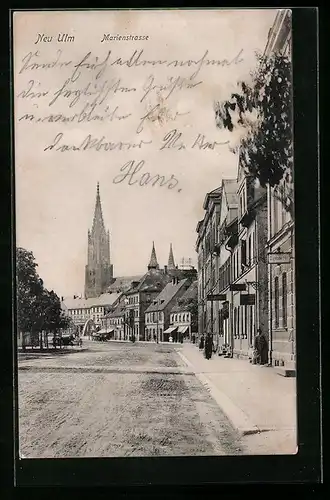 Neu Ulm Marienstrasse
Sende früh allen nochmal
die herzlichsten Grüße
u. verbleibe Euer
dankbarer
Hans.